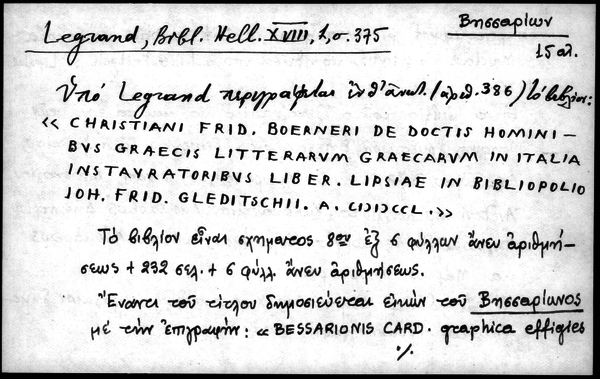 Βησσαρίων
Legrand, Bibl. Hell. XVIII, 1, σ. 375
15 αι.
Ὑπὸ Legrand περιγράφεται ἐνθ' ἀνωτ. (ἀριθ. 386) τὸ βιβλίον:
« CHRISTIANI FRID. BOERNERI DE DOCTIS HOMINI-
BVS GRAECIS LITTERARVM GRAECARVM IN ITALIA
INSTAVRATORIBVS LIBER. LIPSIAE IN BIBLIOPOLIO
IOH. FRID. GLEDITSCHII. A. CIƆIƆCCL.»
Τὸ βιβλίον εἶναι σχήματος 8ου ἐξ 6 φύλλων ἄνευ ἀριθμή-
σεως + 232 σελ. + 6 φύλλ. ἄνευ ἀριθμήσεως.
Ἔναντι τοῦ τίτλου δημοσιεύεται εἰκὼν τοῦ Βησσαρίωνος
μὲ τὴν ἐπιγραφήν: « BESSARIONIS CARD. graphica effigies
./.